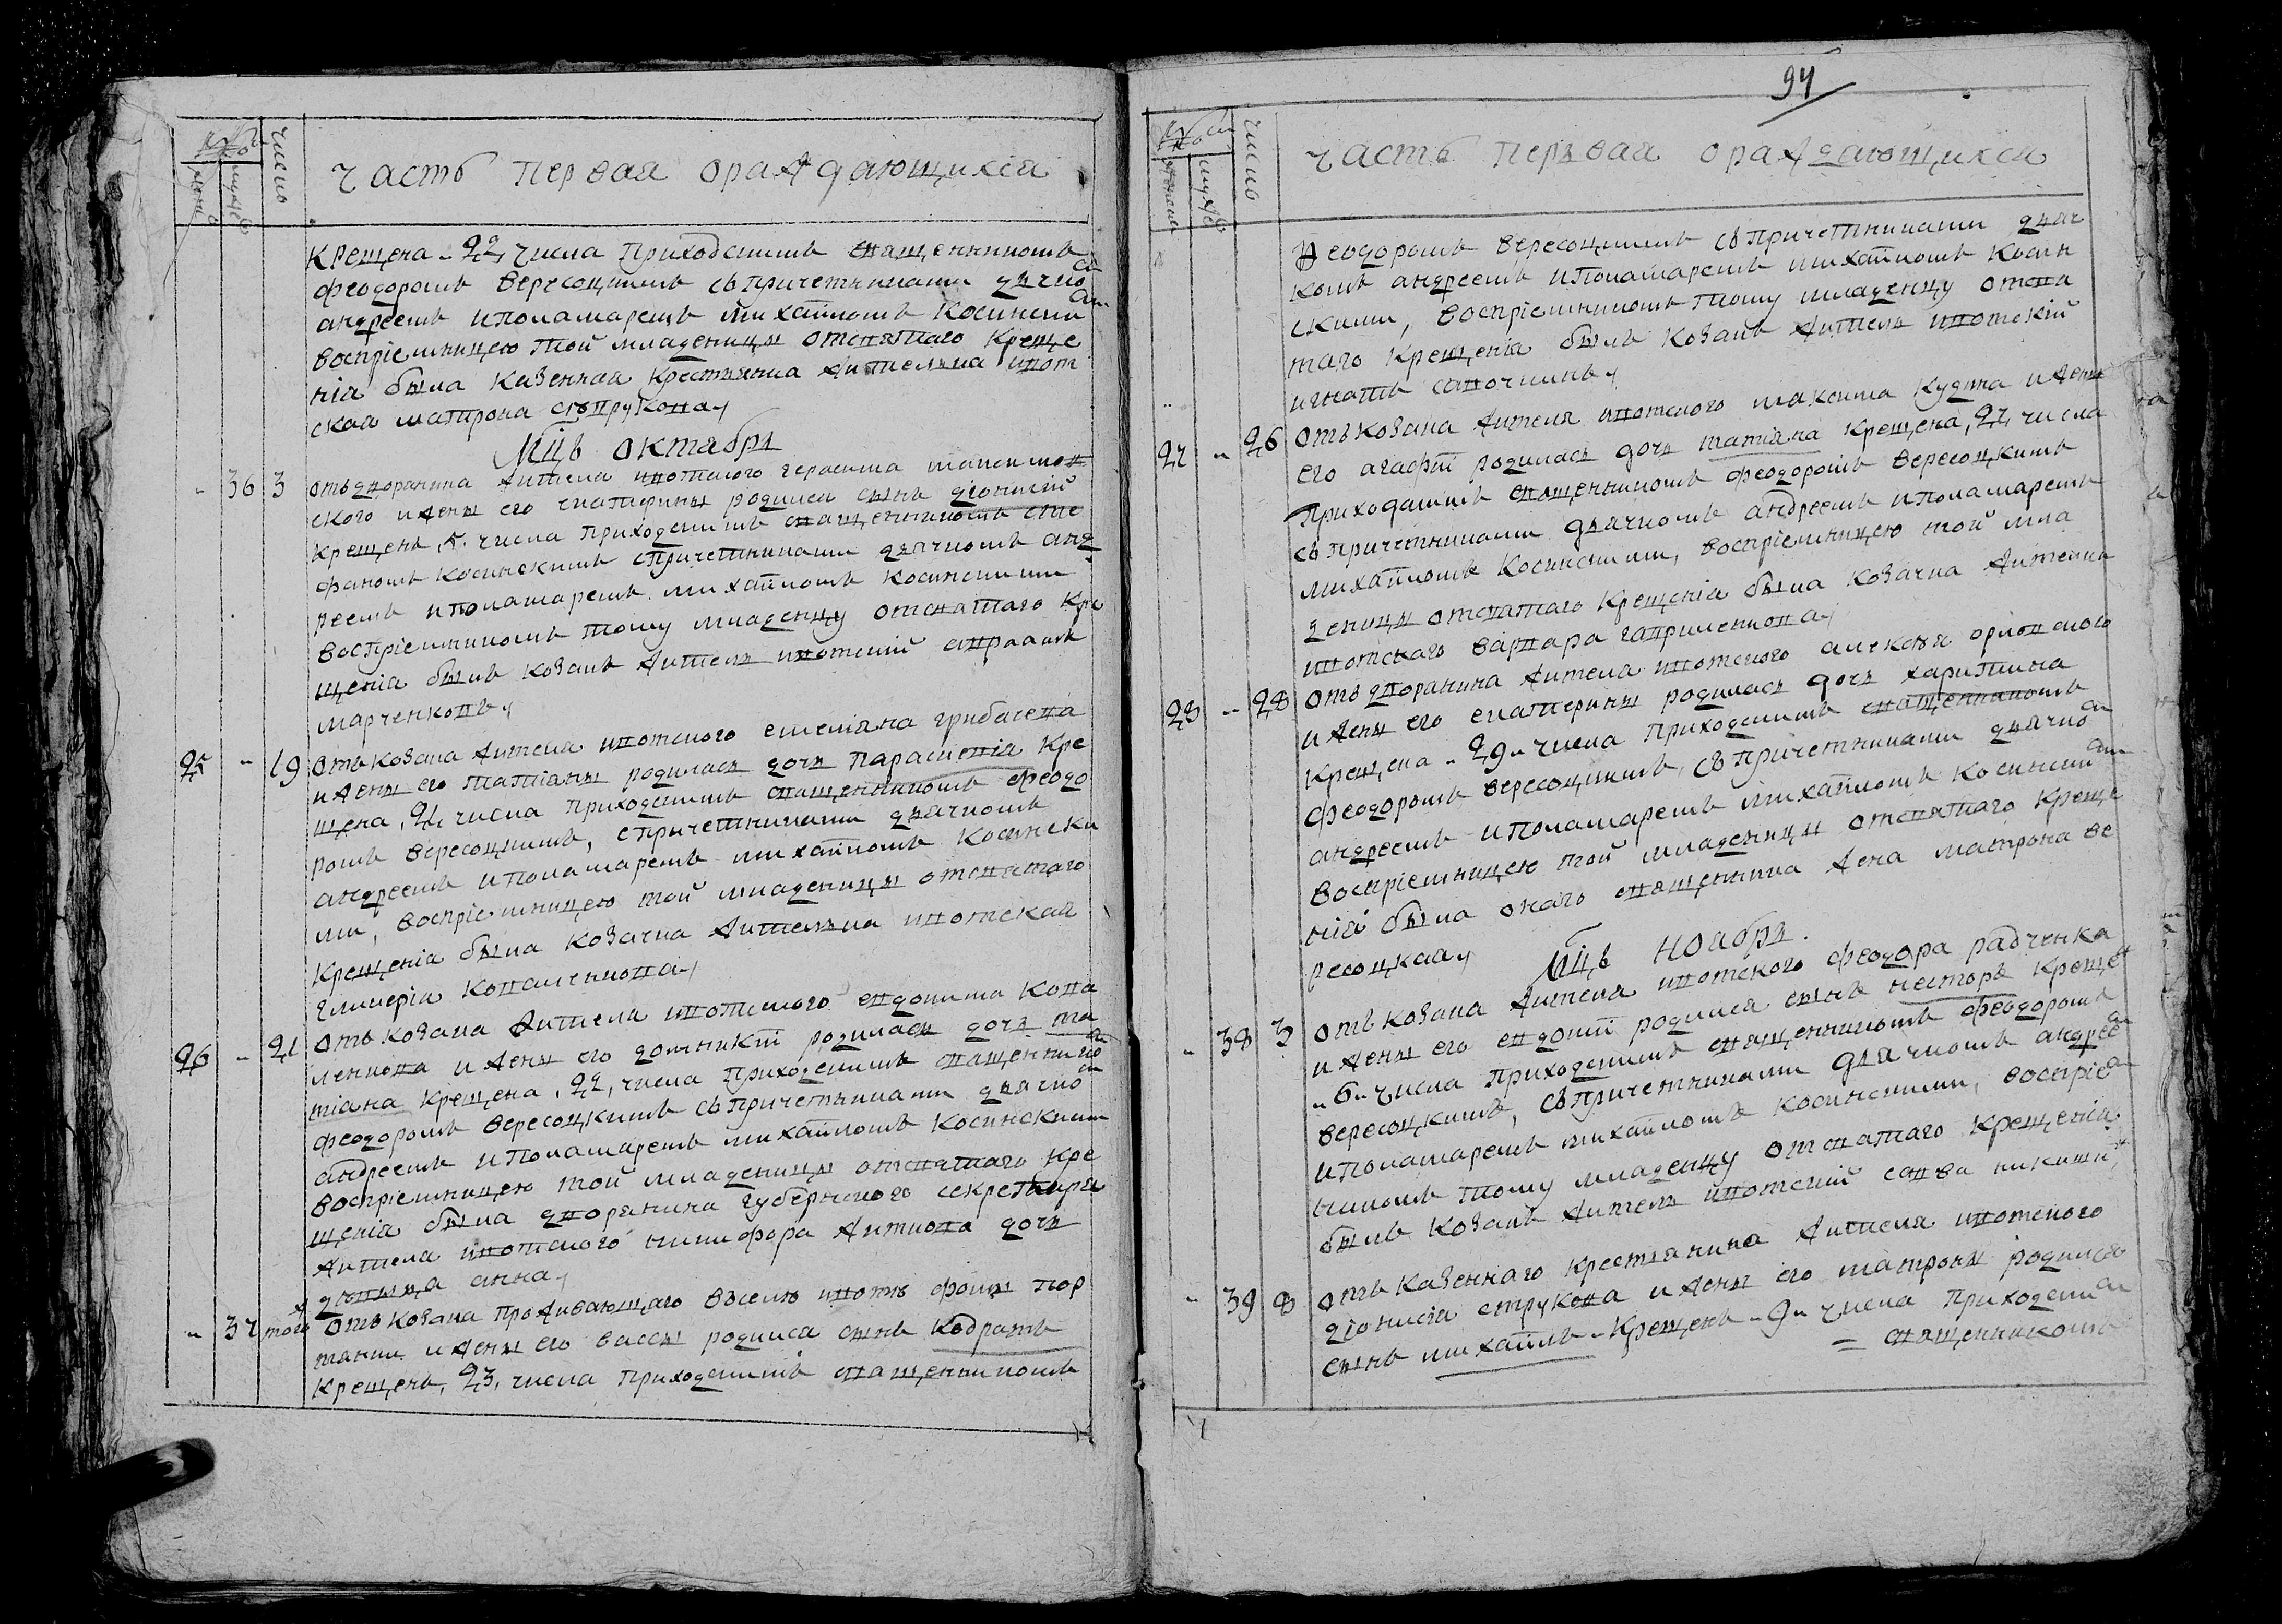 число
часть первая ораждающихся
крещена 22 числа приходскимъ священникомъ
феодоромъ вересоцкимъ съ причетниками дячко
андреемъ и пономаремъ михаиломъ косински
восприемницею той младеницы отсвятаго креще
нія была казенная крестянка жителька ивот
ская матрона струкова
Мцъ октябрь
36 3 отъ дворянина жителя ивотского герасима
ского и жены его екатерины родился сынъ діонисій
крещенъ 5 числа приходскимъ священникомъ сте
фаномъ косинскимъ спричетниками дячкомъ анд
реемъ и пономаремъ михаиломъ косинскими
восприемникомъ тому младенцу отсвятаго кре
щенія былъ козакъ житель ивотскій
марченковъ
25 19 отъ козака жителя ивотского емеліяна грибачева
и жены его татіаны родилась дочь параскевія кре
щена 21 числа приходскимъ священникомъ феодо
ромъ вересоцкимъ, спричетниками дячкомъ
андреемъ и пономаремъ михаиломъ косински
ми, восприемницею той младеницы отсвятаго
крещенія была козачка жителька ивотская
гликерія коваленкова
26 21 отъ козака жителя ивотского евдокима кова
ленкова и жены его домникіи родилась дочь та
тіана крещена 22 числа приходскимъ священнико
феодоромъ вересоцкимъ съ причетниками дячко
андреемъ и пономаремъ михаиломъ косинским
восприемницею той младеницы отсвятаго кре
щенія была дворянина губернского секретаря
жителя ивотского никифора житкова дочь
девица анна
37 того отъ козака проживающаго вселѣ ивотѣ фомы
и жены его вассы родился сынъ кодратъ
крещенъ 23 числа приходскимъ священникомъ
94
число
часть первая ораждающихся
феодоромъ вересоцкимъ съ причетниками дяч
комъ андреемъ и пономаремъ михаиломъ косин
скими, восприемникомъ тому младенцу отсвя
таго крещенія былъ козакъ житель ивотскій
игнатъ
27 26 отъ козака жителя ивотского максима кудина и жены
его агафіи родилась дочь татіана крещена 27 числа
приходскимъ священникомъ феодоромъ вересоцкимъ
съ причетниками дячкомъ андреемъ и пономаремъ
михаиломъ косинскими, восприемницею той мла
деницы отсвятаго крещенія была козачка жителька
ивотскаго варвара гавриленкова
28 28 отъ дворянина жителя ивотского алексѣя орловского
и жены его екатерины родилась дочь харитина
крещена 29 числа приходскимъ священникомъ
феодоромъ вересоцкимъ, съ причетниками дячко
андреемъ и пономаремъ михаиломъ косински
восприемницею той младеницы отсвятаго креще
нія была онаго священника жена матрона ве
ресоцкая
Мцъ ноябрь
38 3 отъ козака жителя ивотского феодора радченка
и жены его евдокіи родился сынъ несторъ креще
6 числа приходскимъ священникомъ феодоромъ
вересоцкимъ, съ причетниками дячкомъ андрее
и пономаремъ михаиломъ косинскими, восприе
никомъ тому младенцу отсвятаго крещенія
былъ козакъ житель ивотскій савва
39 8 отъ казеннаго крестянина жителя ивотского
діонисія струкова и жены его матроны родился
сынъ михаилъ крещенъ 9 числа приходски
священникомъ